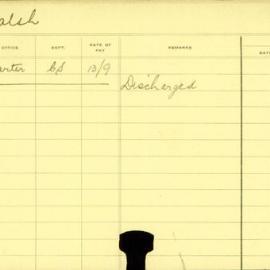 alsh
OFFICE DEPT. RATE OF PAY REMARKS DA
arter CS 13/9
Discharged